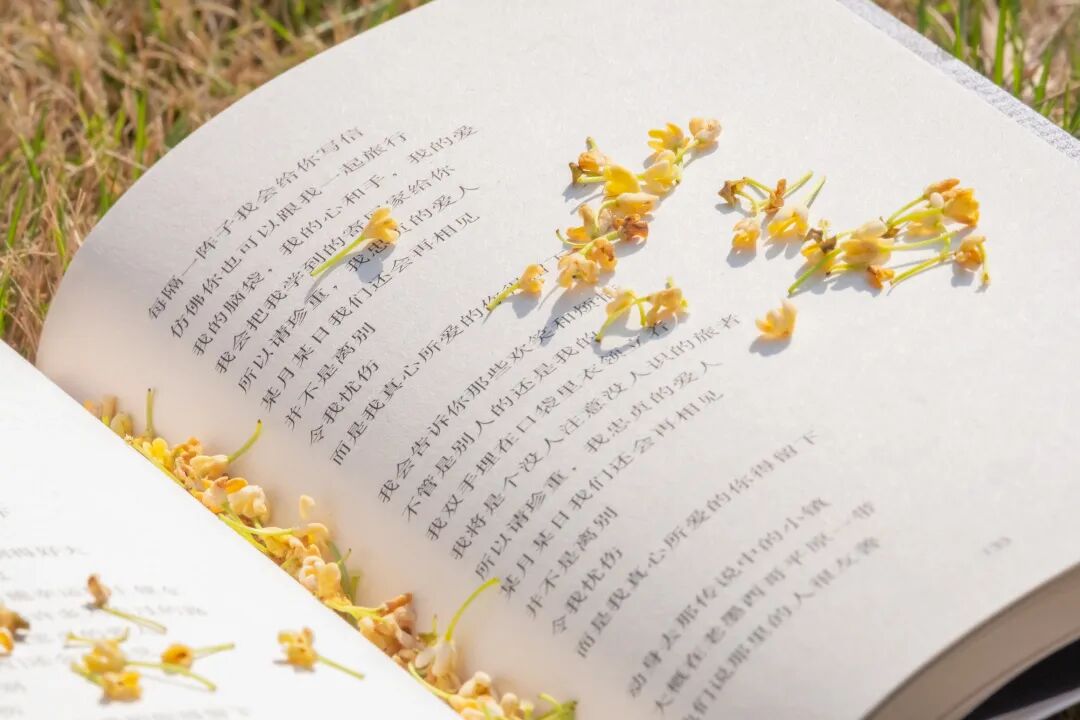 每隔一阵子我会给你写信
仿佛你也可以跟我一起旅行
我的脑袋，我的心和手，我的爱
我会把我学到的寄 家给你
所以请珍重，我忠贞的爱人
某月某日我们还会再相见
并不是离别
令我忧伤
而是我真心所爱的你
我会告诉你那些欢笑和
不管是别人的还是我的
我双手埋在口袋里衣领
我将是个没人注意没人识的旅者
所以请珍重，我忠贞的爱人
某月某日我们还会再相见
并不是离别
令我忧伤
而是我真心所爱的你得留下
动身去那传说中的小镇
大概在老墨西哥平原一带
他们说那里的人很友善